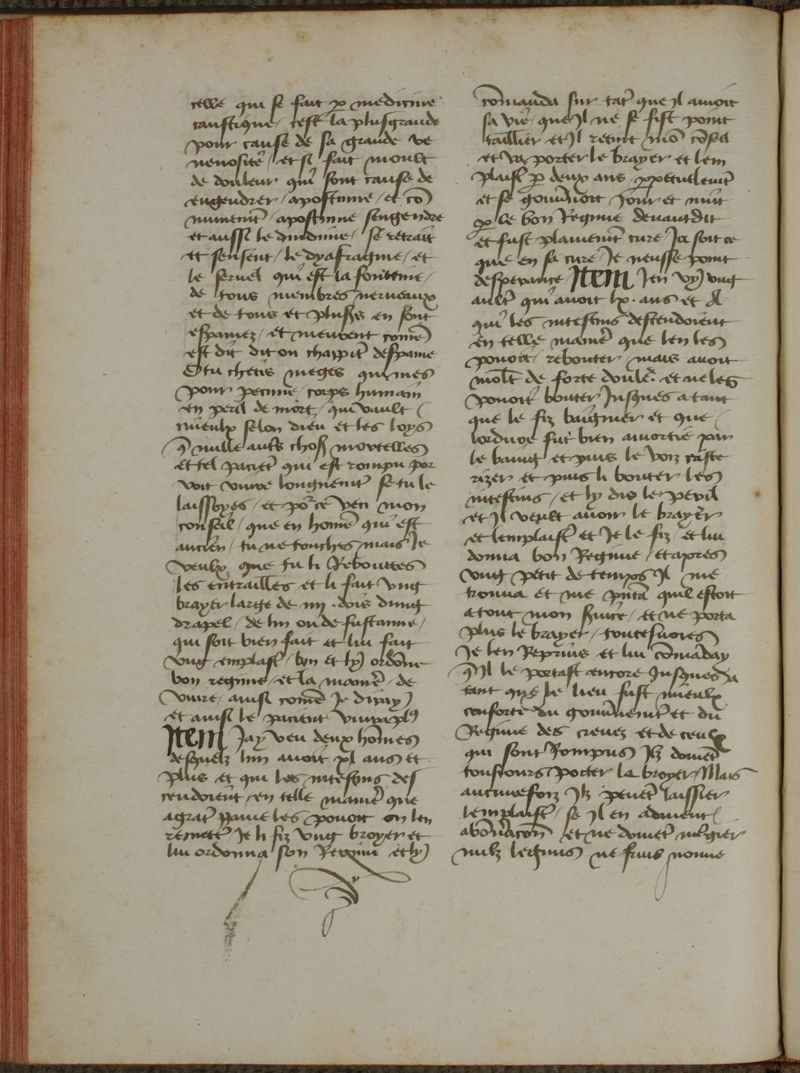 celle qui se fait par medicine
caustique / cest la plusgrande
pour cause de sa grande ve
nenosite / et si fait moult
de douleur qui sont cause de
engendrer / apostume / et cõ
munemẽt apostume sengendre
et aussi le dindime / se retrait
et sensent / le dyafragme / et
le servel qui est la fonteine /
de tous membres nerveaux
et de tous et plusrs en sont
espamez / et meurent come
est dit dit ou chappit despame
O tu chetis meges qui mes
pour peccune / corps humain
en peril de mort / qui vault
mieulx selon dieu et les loys
q̃ mille auts choses mortelles
et tel paciet qui est rompu por
roit vivre longuemẽt se tu le
laissoyes / et pour ce veci mon
conseil / que en home qui est
ancien / tu ne touches mais Je
veulx que tu li Reboutes
les entrailles et li fait vng
brayer large de iiij dois dung
drapel / de lin ou de fustanne /
qui soit bien fait et lui fait
vng emplast / bon et ly ordone
bon regime et la manie de
vivre / ainsi come Je diray
et ainsi le pacient vivra pl9
Item Jay veu deux homes
desquelz lun avoit xl ans et
plus et qui les intestins des
cendoient / en telle manie que
a grat paine les pouoit on len
remette Je li fiz vng brayer et
lui ordonna son Regime et ly
comanda sur tat que il avoit
sa vie que il ne se fist point
taillier et Il retint mon cõseil
et va porter le brayer et lem
plast par deux ans / ppetuelemẽt
et se gouvnoit Jour et nuit
par le bon Regime devantdit
et fust plainemẽt cure Ja soit ce
que en sa cure Je neusse point
desperance Item Jen vy vng
autre qui avoit lx ans et Il
qui les intestins descendoient
en telle manie que len les
pouoit rebouter mais avoit
molt de forte doule / et ne les
pouoit bouter Jusques a tant
que le fiz baignier et que /
lordure fut bien amortie par
le baing et puis le voiz caute
rizer et puis li bouter les
intestins / et ly dis le peril
et Il veult avoir le brayer
et lemplast et Je le fiz et lui
donna bon Regime / et apres
vng petit de temps Il me
trouva et me pñta quil estoit
a tout mon svice / et ne porta
plus le brayer / toutesvoies
Je len Reprins et lui comanday
q̃ Il le portast encore Jusques a
tant que le lieu fust mieulx
conforte du gouvnemẽt et du
Regime des crevez et de ceulx
qui sont Rompus Ilz doivet
tousiours porter la brayer / Mais
aucunefoiz Ilz pevet laissier
lemplast / se Il en advient
et ne doivet mẽgier
nulz legũs ne fruis nonne